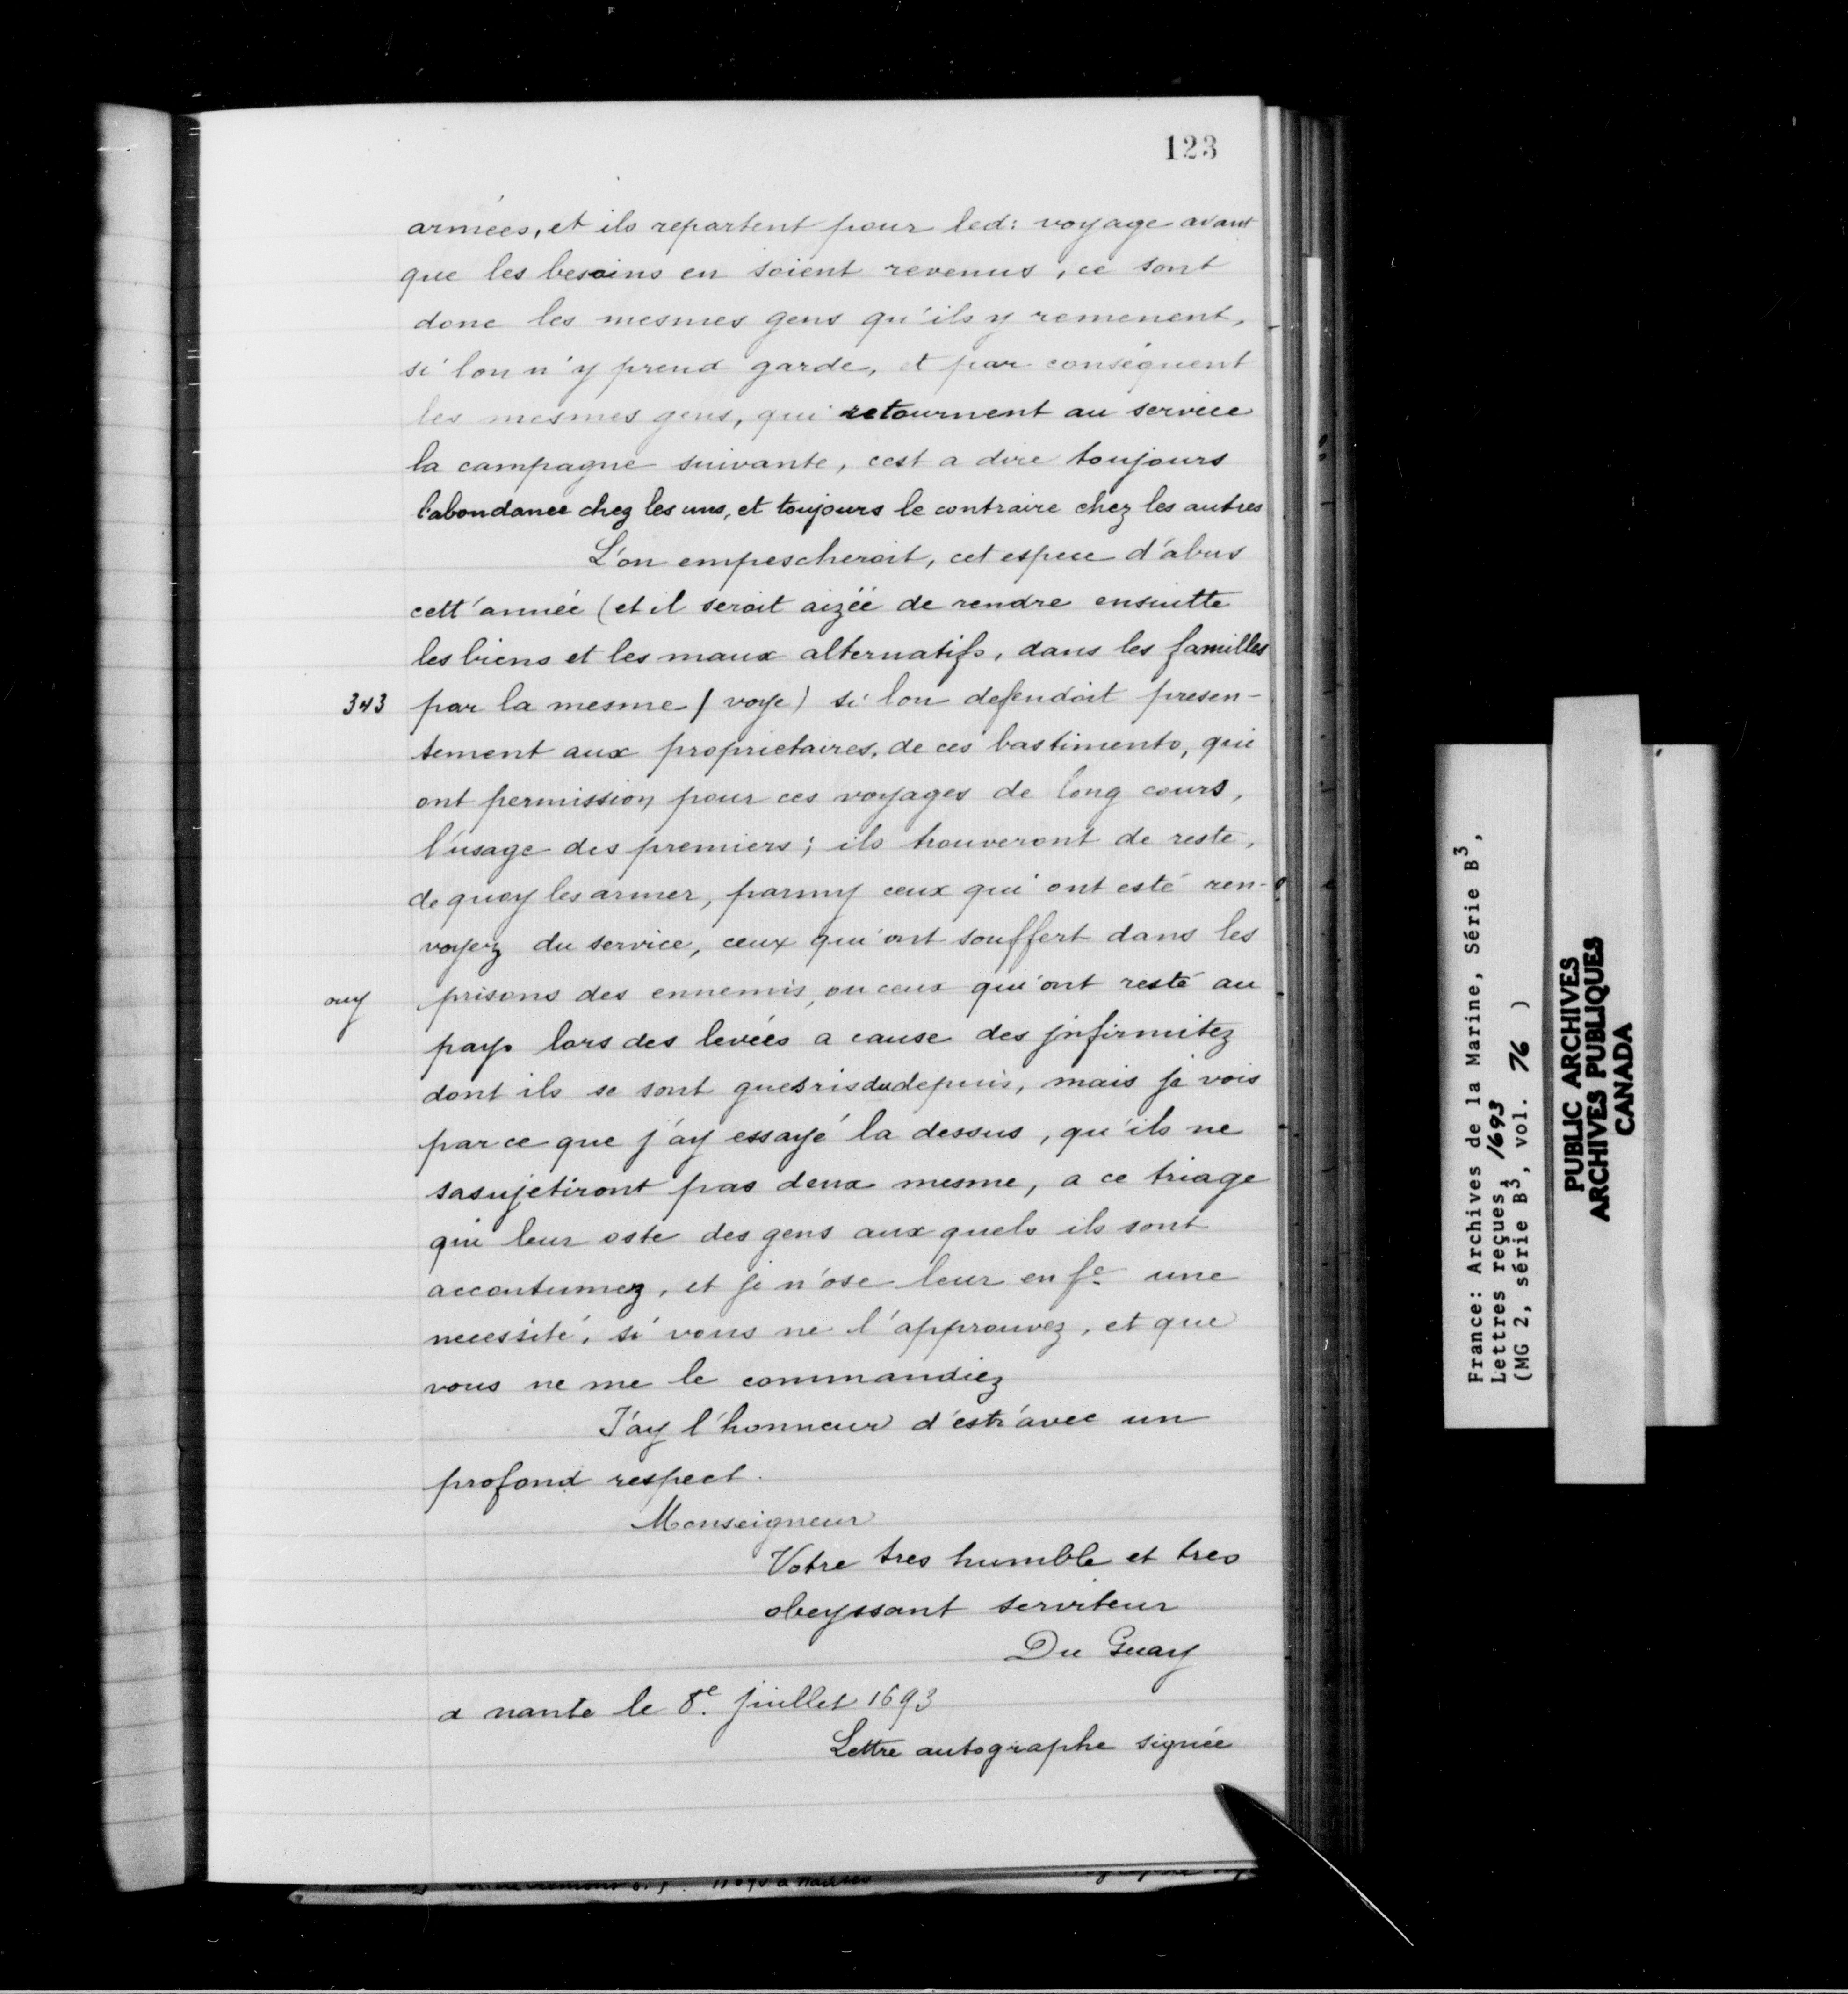 123
armées, et ils repartent pour led: voyage avant
que les besoins en soient revenus, ce sont
donc les mesmes gens qu'ils y remenent,
si lon n'y prend garde, et par conséquent
les mesmes gens, qui retournent au service
la campagne suivante, cest a dire toujours
l'abondance chez les uns, et toujours le contraire chez les autres
L'on empescheroit, cet espece d'abus
cett'année (et il seroit aizéé de rendre ensuitte
les biens et les maux alternatifs, dans les familles
343 par la mesme / voye) si lon defendoit presen-
tement aux proprietaires, de ces bastiments, qui
ont permission pour ces voyages de long cours,
l'usage des premiers; ils trouveront de reste,
de quoy les armer, parmy ceux qui ont esté ren-
voyez du service, ceux qui ont souffert dans les
ouy prisons des ennemis, ou ceux qui ont resté au
pays lors des levées a cause des jnfirmitez
dont ils se sont guesris du depuis, mais je vois
par ce que j'ay essayé la dessus, qu'ils ne
sasujetiront pas deux mesme, a ce triage
qui leur oste des gens aux quels ils sont
accoutumez, et je n'ose leur en fe une
necessité, si vous ne l'approuvez, et que
vous ne me le commandiez
J'ay l'honneur d'estr'avec un
profond respect.
Monseigneur
Votre tres humble et tres
obeyssant serviteur
Du Guay
a nante le 8e. juillet 1693
Lettre autographe signée
France: Archives de la Marine, Série B3,
Lettres reçues, 1693
(MG 2, série B3, vol. 76 )
PUBLIC ARCHIVES
ARCHIVES PUBLIQUES
CANADA